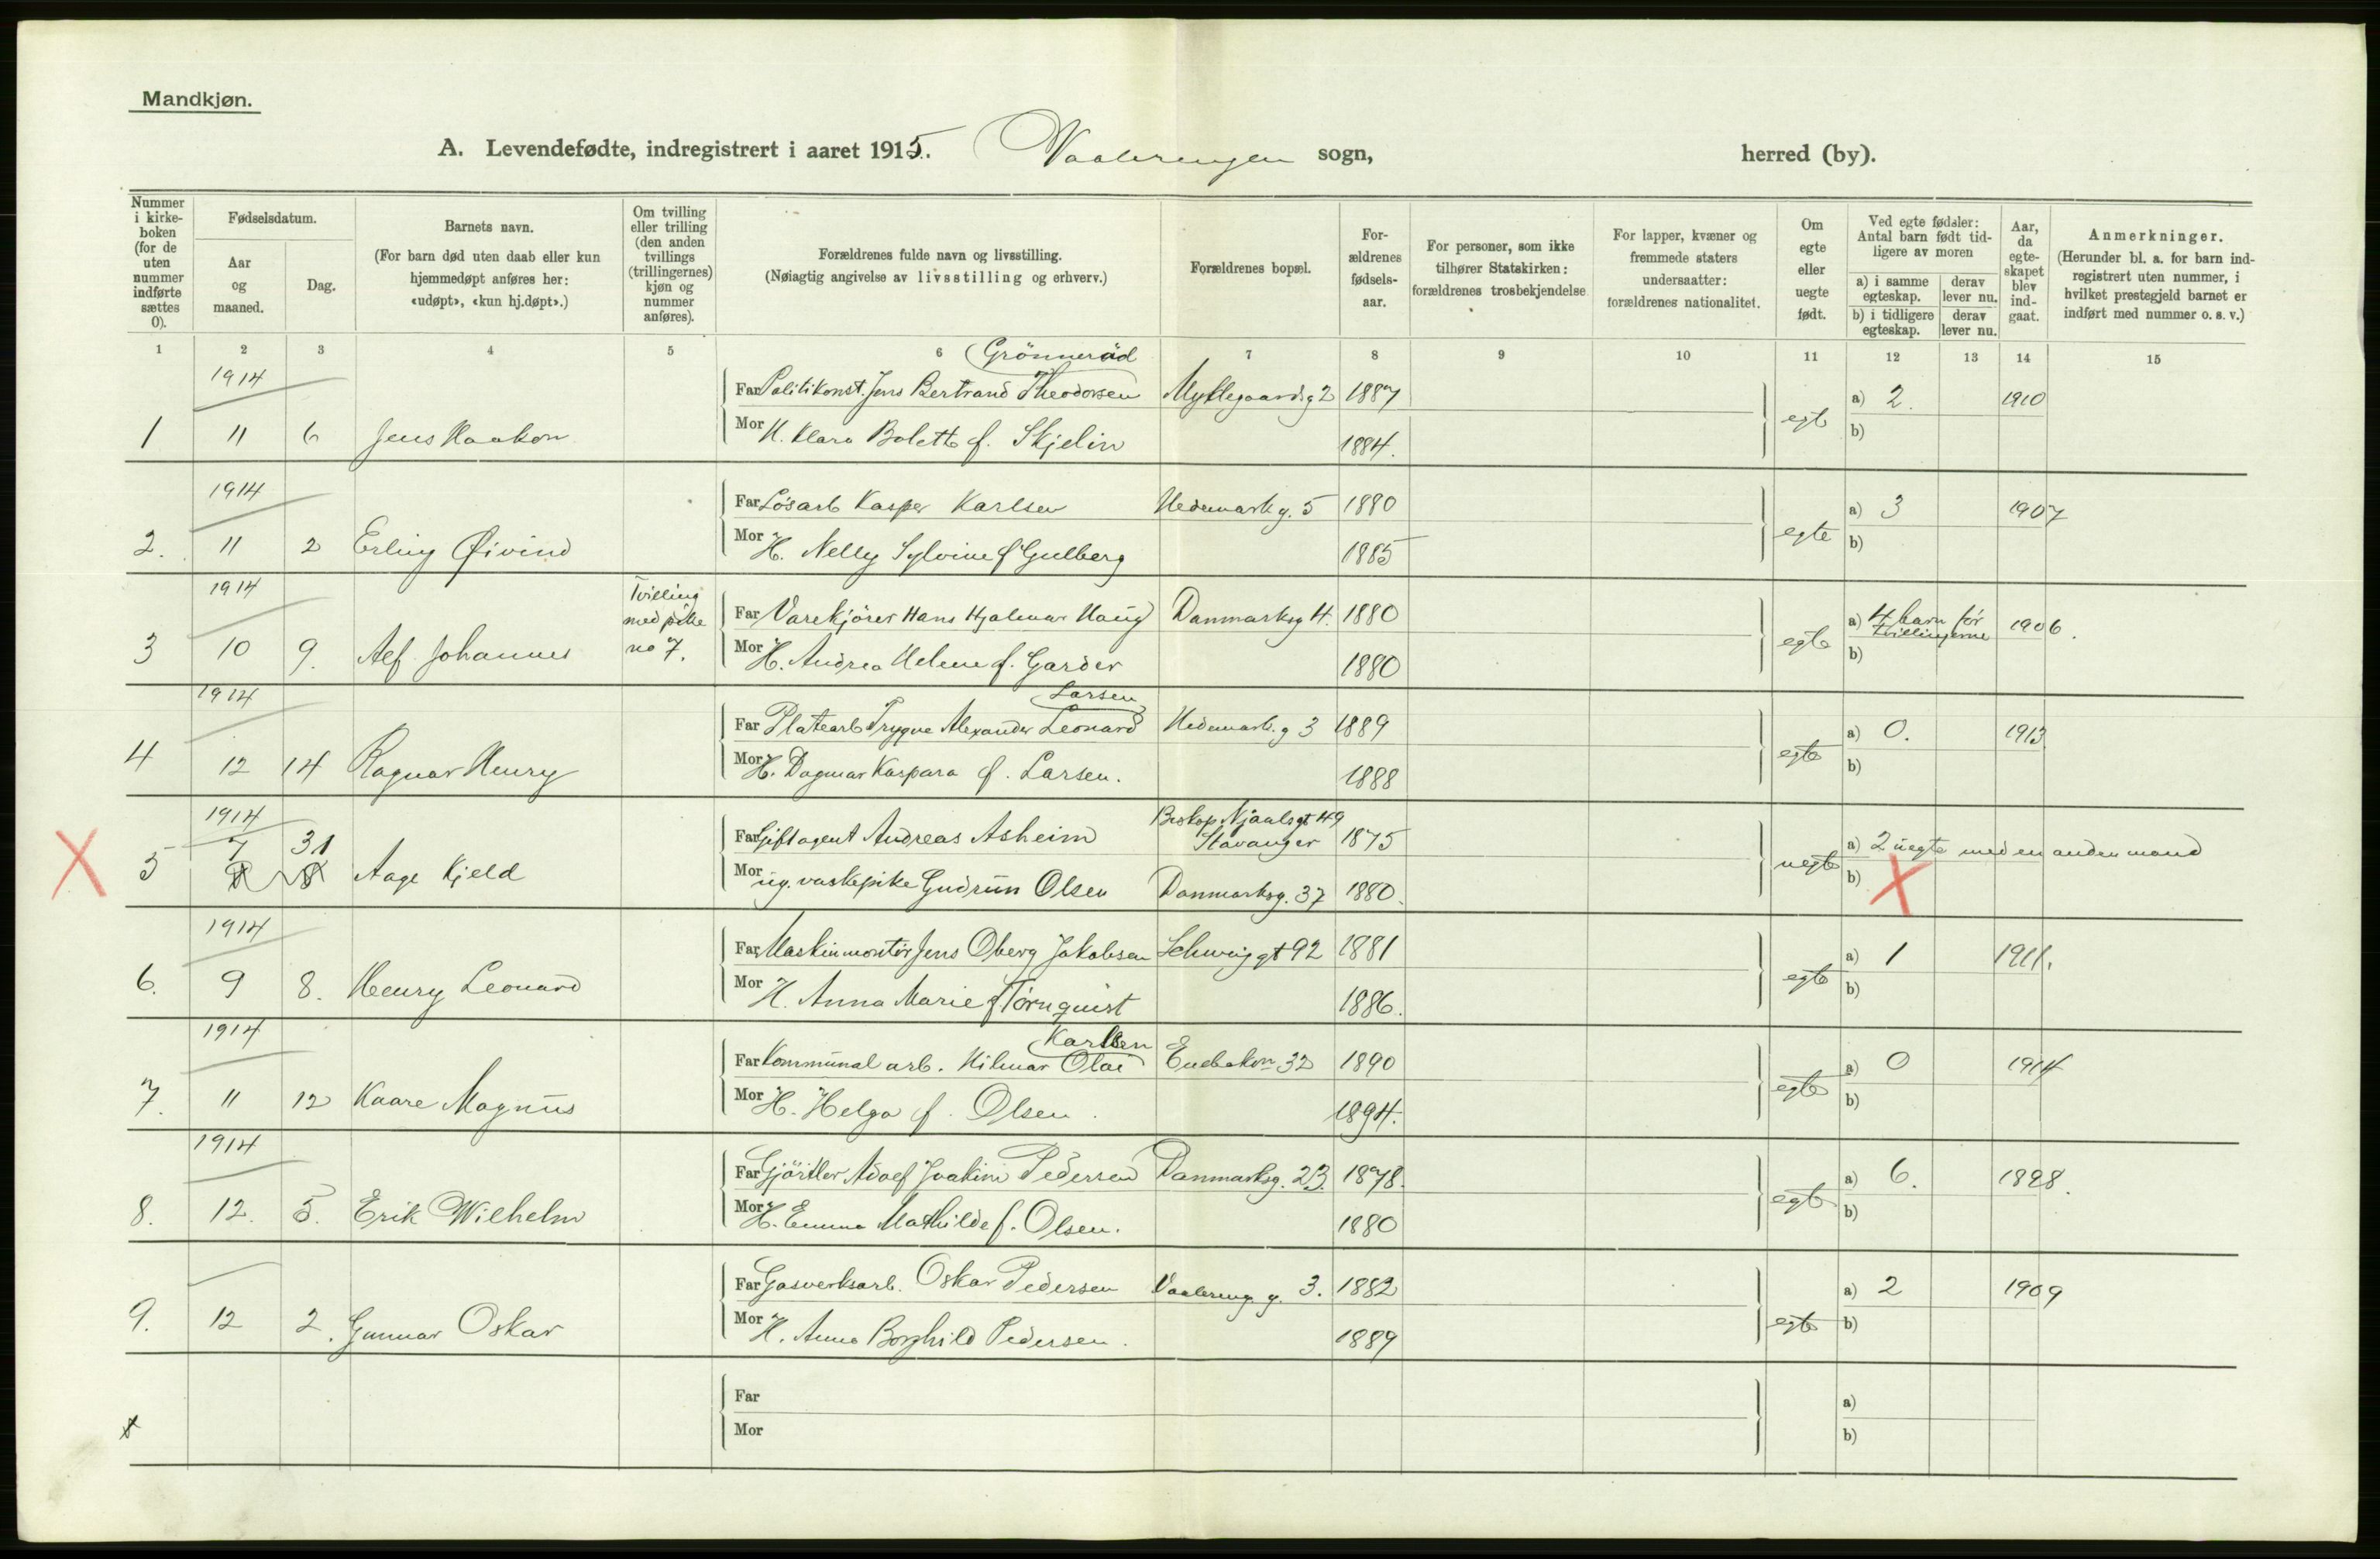 Mandkjøn.
A. Levendefødte, indregistrert i aaret 1915. Vaalerengen sogn, herred (by).
Nummer i kirke- boken (for de uten nummer indførte sættes 0).
Fødselsdatum.
Aar og maaned.
Dag.
Barnets navn.
(For barn død uten daab eller kun hjemmedøpt anføres her: «udøpt», «kun hj.døpt».)
Om tvilling eller trilling (den anden tvillings (trillingernes) kjøn og nummer anføres).
Forældrenes fulde navn og livsstilling.
(Nøiagtig angivelse av livsstilling og erhverv.)
Forældrenes bopæl.
For- ældrenes fødsels- aar.
For personer, som ikke tilhører Statskirken: forældrenes trosbekjendelse
For lapper, kvæner og fremmede staters undersaatter: forældrenes nationalitet.
Om egte eller uegte født.
Ved egte fødsler: Antal barn født tid- ligere av moren
a) i samme egteskap.
derav lever nu.
b) i tidligere egteskap.
derav lever nu.
Aar, da egte- skapet blev ind- gaat.
Anmerkninger.
(Herunder bl. a. for barn ind- registrert uten nummer, i hvilket prestegjeld barnet er indført med nummer o. s. v.)
1 2 3 4 5 6 7 8 9 10 11 12 13 14 15
Grönneröd
1914
Far Politikonst. Jens Bertrand Theodorsen Myklegaardsg 2 1887 a) 2. 1910
1 11 6 Jens Haakon Mor H. Klara Bolette f. Skjelin 1884. egte b)
1914
Far Løsarb Kasper Karlsen Hedemark g. 5 1880 a) 3 1907
2. 11 2 Erling Øivind Mor H. Nelly Sylvine f Gulberg 1885 egte b)
1914 Tvilling med pike no 7.
Far Varekjörer Hans Hjalmar Haug Danmarksg 4. 1880 a) 4 barn för tvillingerne 1906.
3 10 9. Alf Johannes Mor H. Andrea Helene f. Garder 1880 egte b)
Larsen
1914
Far Platearb Trygve Alexander Leonard Hedemark. g 3 1889 a) 0. 1913
4 12 14 Ragnar Henry Mor H. Dagmar Kaspara f. Larsen. 1888 egte b)
1914 Biskop Njaalsgt 49
7 31 Far Giftagent Andreas Asheim Stavanger 1875 a) 2 uegte med en anden mand
5 Aage Kjeld Mor ug. vaskepike Gudrun Olsen Danmarksg. 37 1880. uegte b)
1914
Far Maskinmontör Jens Oberg Jakobsen Schweig gt 92 1881 a) 1 1911.
6. 9 8. Henry Leonard Mor H. Anna Marie f Törnquist 1886. egte b)
Karlsen
1914
Far Kommunal arb. Hilmar Olai Enebakvn 32 1890 a) 0 1914
7. 11 12 Kaare Magnus Mor H. Helga f. Olsen. 1894. egte b)
1914
Far Gjörtler Adolf Joakim Pedersen Danmarksg. 23. 1878. a) 6. 1898.
8. 12. 5. Erik Wilhelm Mor H. Emma Mathilde f. Olsen. 1880 egte b)
Far Gasverksarb. Oskar Pedersen Vaalereng. g. 3. 1882 a) 2 1909
9. 12 2. Gunnar Oskar Mor H. Anna Borghild Pedersen. 1889 egte b)
Far a)
Mor b)